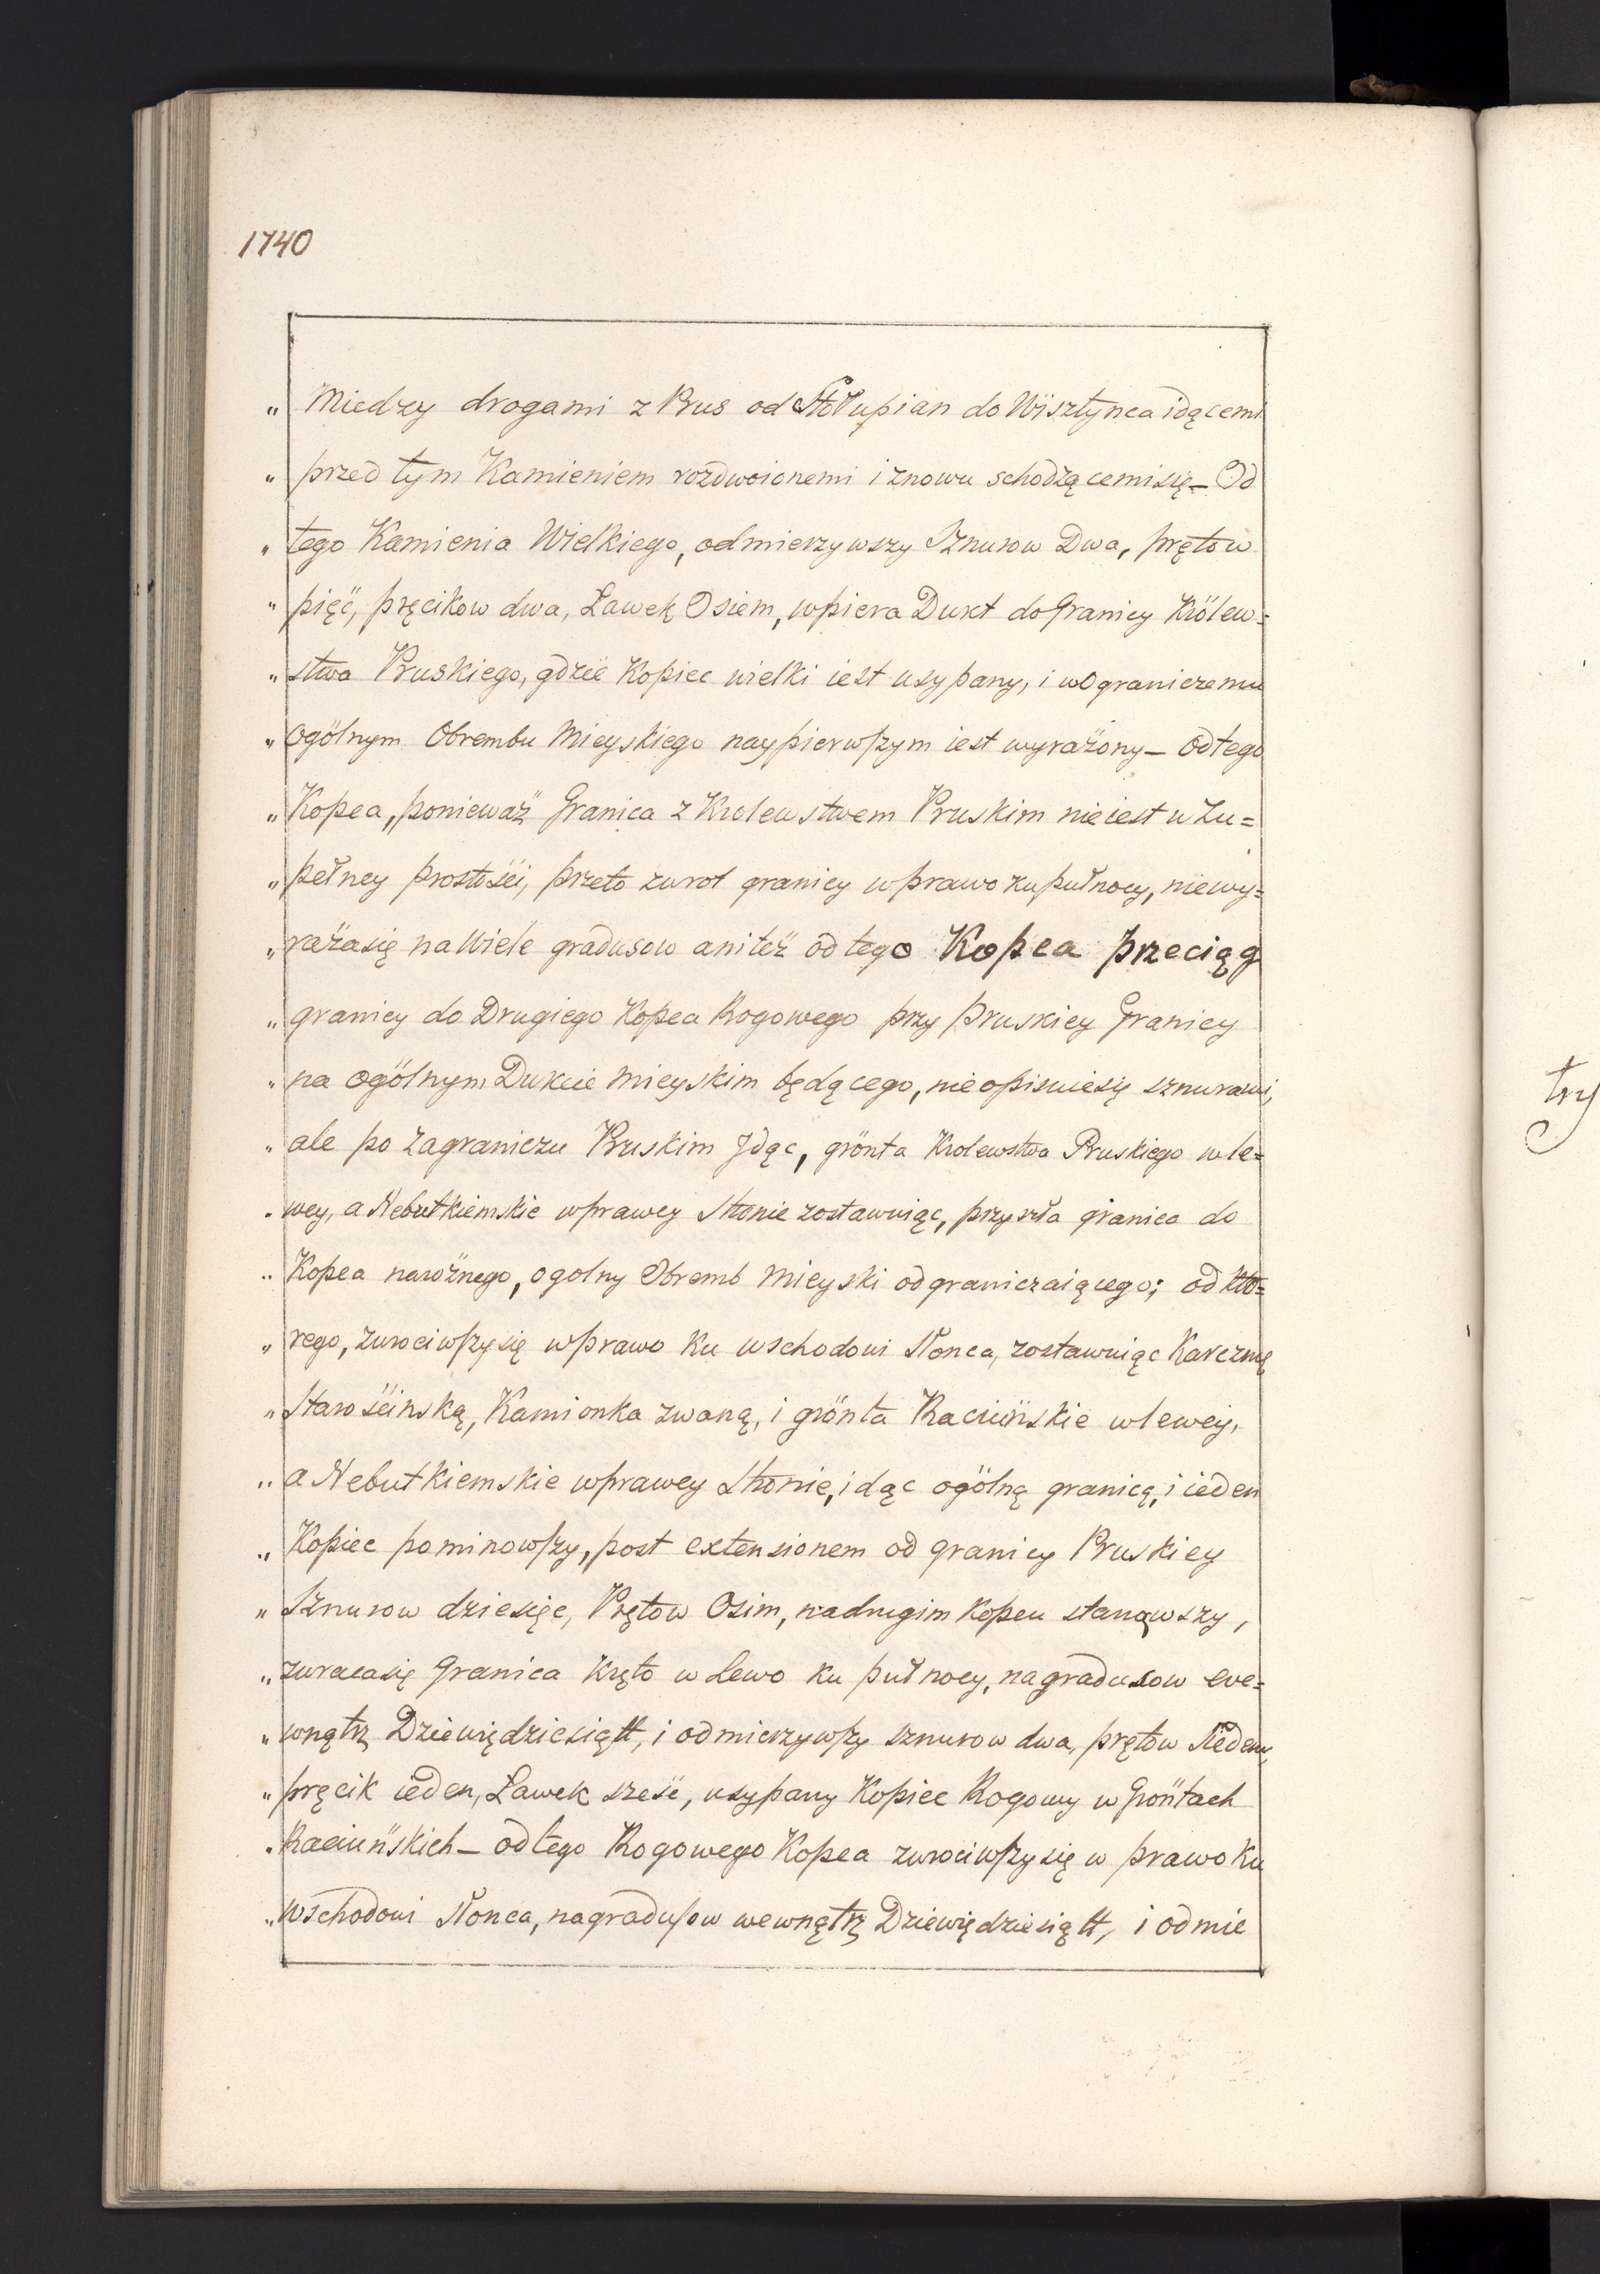 1740
" Miedzy drogami z Prus od Stołupian do Wisztynca idącemi
" przed tym Kamieniem rozdwoionemi i znowu schodzącemi się_ Od
" tego Kamienia Wielkiego, odmierzywszy Sznurow Dwa, prętow
" pięć, pręcikow dwa, Ławek Osiem, wpiera Dukt do Granicy Krölew=
" stwa Pruskiego, gdzie Kopiec wielki iest usypany, i w Ograniczeniu
" ogölnym Obrembu Mieyskiego naypierwszym iest wyrażony_ od tego
" Kopca, ponieważ Granica z Krolewstwem Pruskim nie iest w Zu=
" pełney prostości, przeto zwrot granicy w prawo ku pułnocy, nie wy=
" raża się na Wiele gradusow ani też od tego Kopca przeciąg
" granicy do Drugiego Kopca Rogowego przy Pruskiey Granicy
" na ogölnym Dukcie Mieyskim będącego, nie opisuie się sznurami,
" ale po Zagraniczu Pruskim Jdąc, grönta Krolewstwa Pruskiego w le=
" wey, a Nebutkiemskie w prawey Stronie zostawuiąc, przyszła granica do
" Kopca narożnego, ogolny Obremb Mieyski odgraniczaiącego; od kto=
" rego, zwrociwszy się w prawo ku wschodowi Słonca, zostawuiąc Karczmę
" Starościnską, Kamionka zwaną, i grönta Raciuńskie w lewey,
" a Nebutkiemskie w prawey Stronie, idąc ogölną granicą, i ieden
" Kopiec pominowszy, post extensionem od granicy Pruskiey
" Sznurow dziesięc, Prętow Osim, na drugim Kopcu stanąwszy,
" zwraca się Granica kręto w Lewo ku pułnocy, na gradusow eve=
" wnątrz Dziewiędziesiątt, i odmierzywszy sznurow dwa, prętow Siedem,
" pręcik ieden, Ławek sześć, usypany Kopiec Rogowy w Gröntach
" Raciuńskich_ od tego Rogowego Kopca zwrociwszy się w prawo ku
" wschodowi Słonca, na gradusow wewnątrz Dziewiędziesiątt, i odmie
try